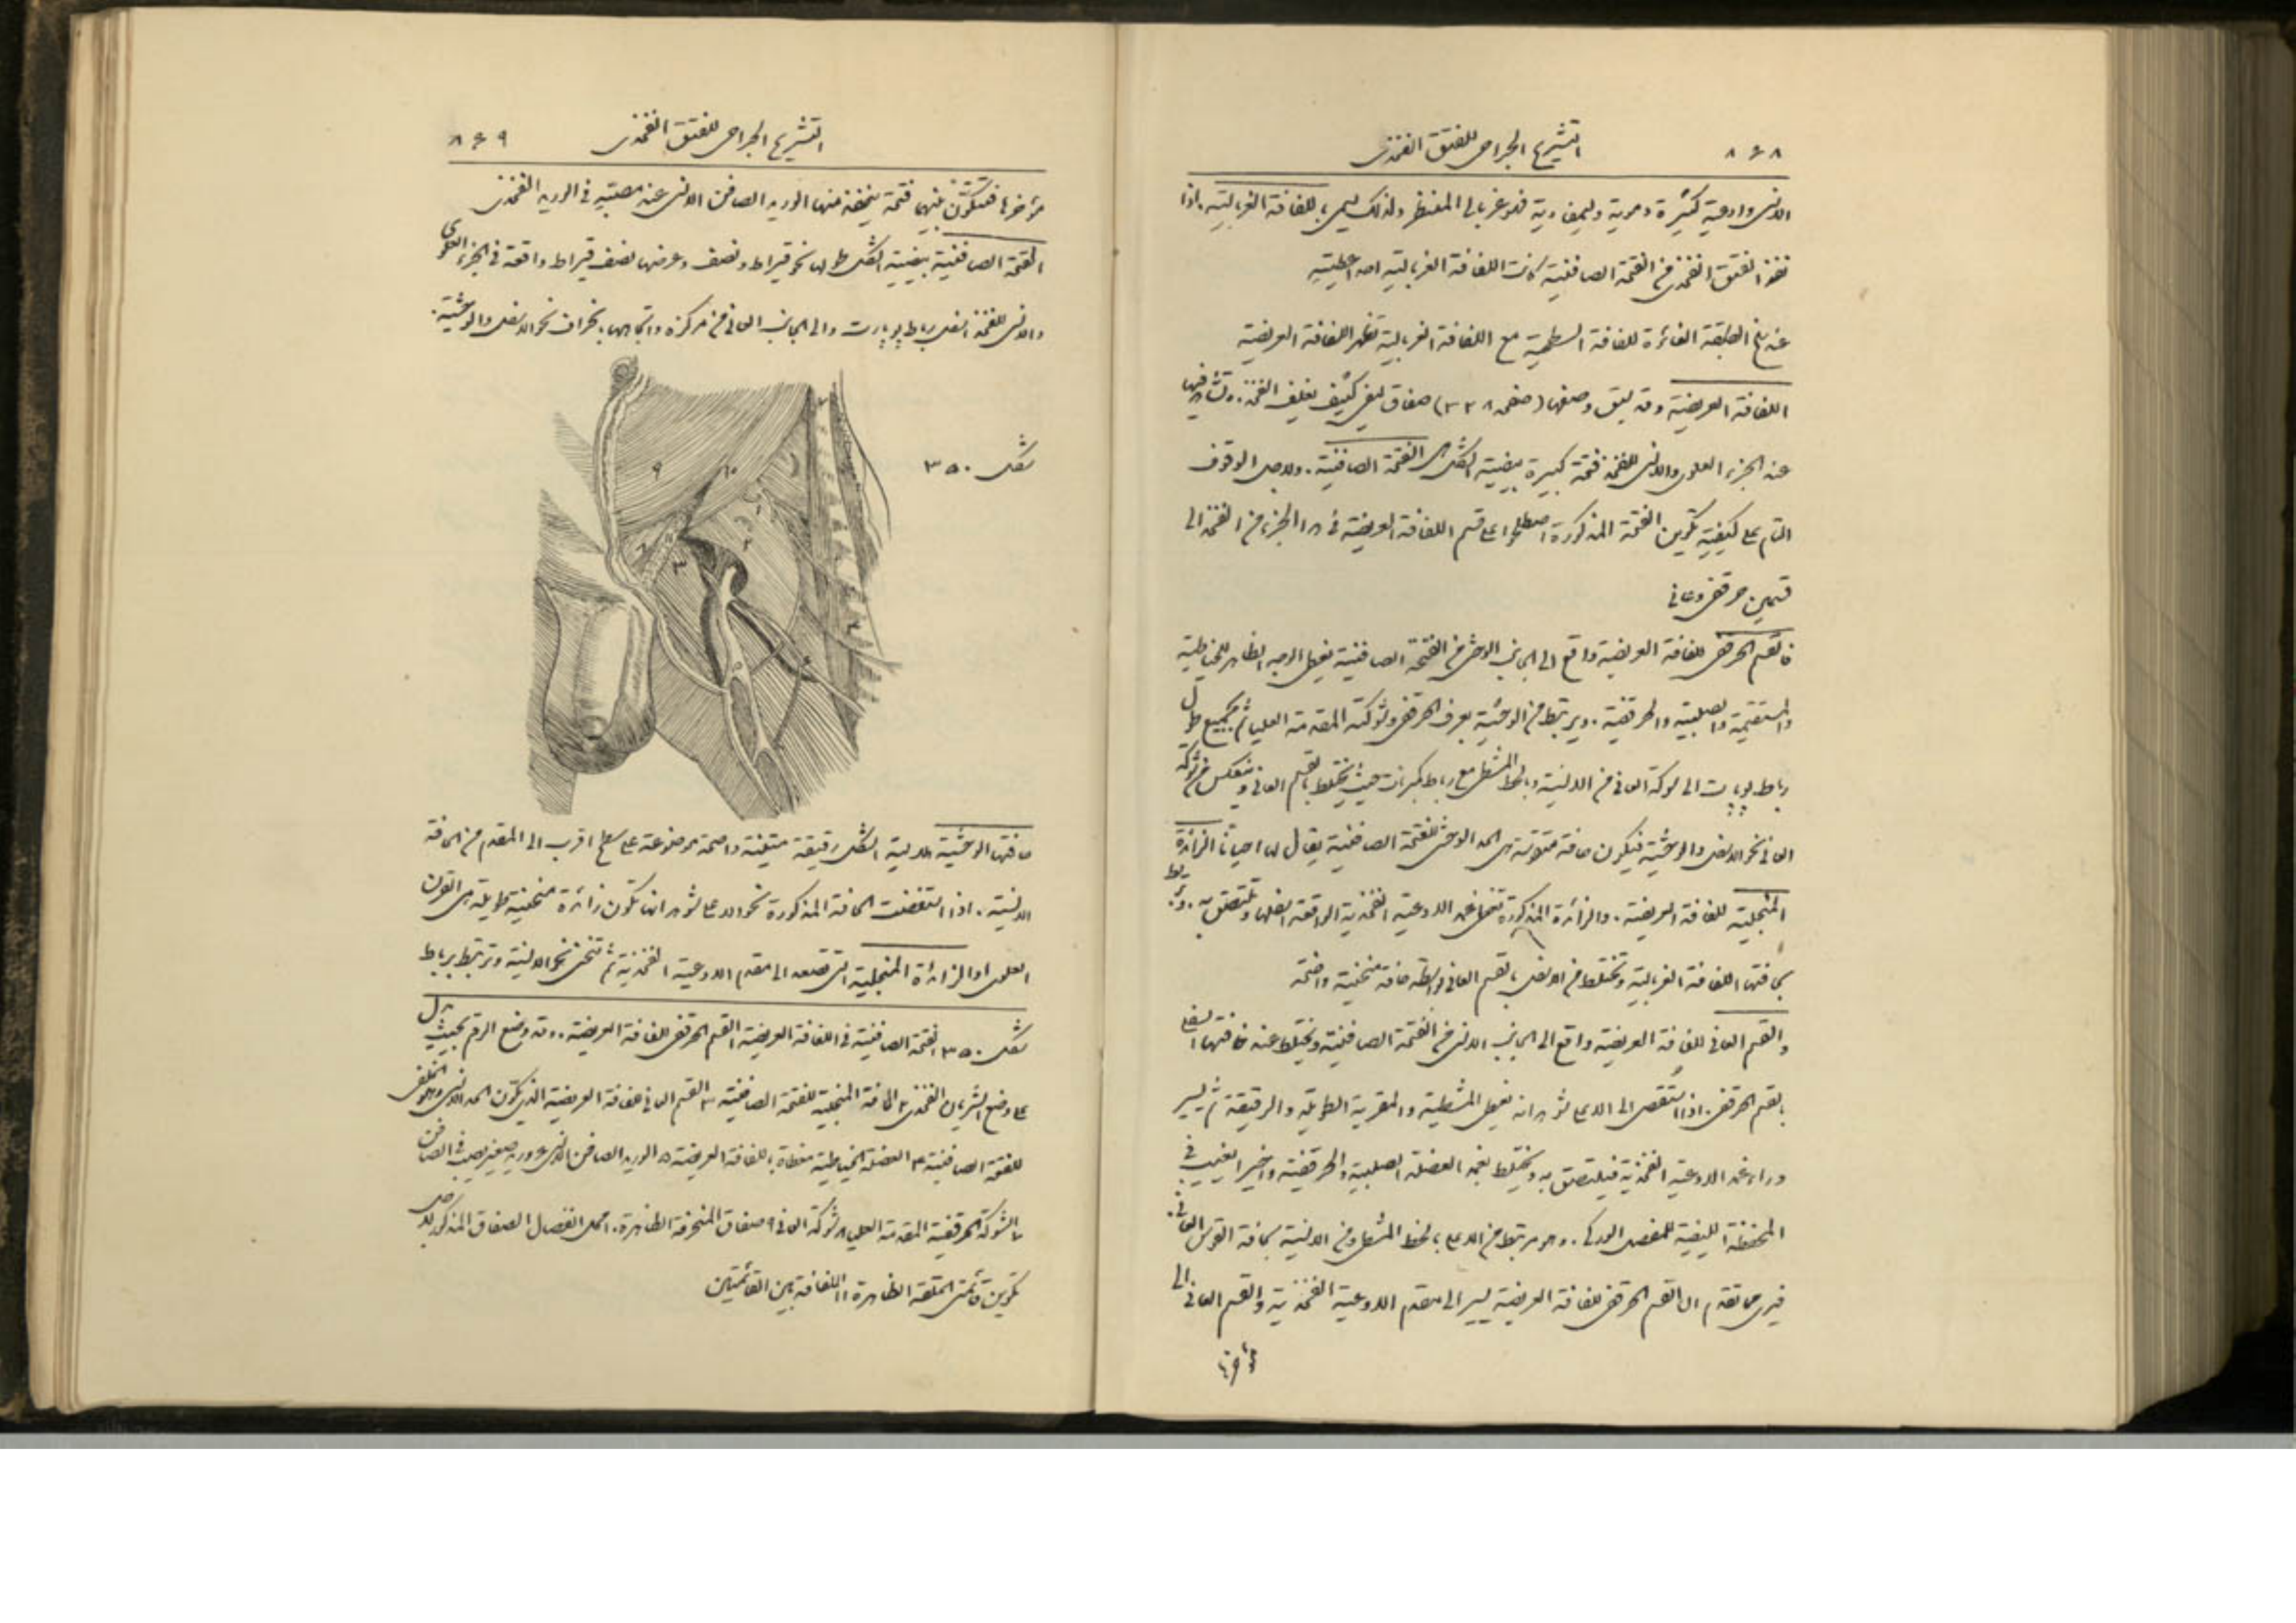 ٨٤٨ التشريح الجراحي للفتق الفخذي
الانسي واوعية كثيرة دموية وليمفاوية فهو غربالي المنظر ولذلك يسمى باللفافة الغربالية. اذا
نفذ الفتق الفخذي من الفتحة الصافنية كانت اللفافة الغربالية احد اغطيته
عند نزع الطبقة الغائرة للفافة السطحية مع اللفافة الغربالية تظهر اللفافة العريضة
اللفافة العريضة وقد سبق وصفها (صفحة ٣٣٨) صفاق ليفي كثيف يغلف الفخذ. وتشاهد فيها
عند الجزء العلوي والانسي للفخذ فتحة كبيرة بيضية الشكل هي الفتحة الصافنية. ولاجل الوقوف
التام على كيفية تكوين الفتحة المذكورة اصطلحوا على قسم اللفافة العريضة في هذا الجزء من الفخذ الى
قسمين حرقفي وعاني
فالقسم الحرقفي للفافة العريضة واقع الى الجانب الوحشي من الفتحة الصافنية يغطي الوجه الظاهر للخياطية
والمستقيمة والصلبية والحرقفية. ويرتبط من الوحشية بعرف الحرقفي وشوكته المقدمة العليا ثم بجميع طول
رباط بوبارت الى شوكة العاني من الانسية وبالخط المشطي مع رباط كمبرنات حيث يختلط بالقسم العاني وينعكس من شوكة
العاني نحو الاسفل والوحشية فيكون حافة متقوسة هي الحد الوحشي للفتحة الصافنية يقال لها احيانا الزائدة
المنجلية للفافة العريضة. والزائدة المذكورة تغطي غمد الاوعية الفخذية الواقعة اسفلها وتلتصق به. وترتبط
بحافتها اللفافة الغربالية وتختلط من الاسفل بالقسم العاني بواسطة حافة منحنية واضحة
والقسم العاني للفافة العريضة واقع الى الجانب الانسي من الفتحة الصافنية ويختلط عند حافتها السفلى
بالقسم الحرقفي. اذا استقصي الى الاعلى شوهد انه يغطي المشطية والمقربة الطويلة والرقيقة ثم يسير
وراء غمد الاوعية الفخذية فيلتصق به ويختلط بغمد العضلة الصلبية والحرقفية واخيرا يغيب في
المحفظة الليفية للمفصل الوركي. وهو مرتبط من الاعلى بالخط المشطي ومن الانسية بحافة القوس العاني.
فيرى مما تقدم ان القسم الحرقفي للفافة العريضة يسير الى مقدم الاوعية الفخذية والقسم العاني الى
مؤخرها
التشريح الجراحي للفتق الفخذي ٨٤٩
مؤخرها فتتكون بينهما فتحة ينفذ منها الوريد الصافن الانسي عند مصبه في الوريد الفخذي
الفتحة الصافنية بيضية الشكل طولها نحو قيراط ونصف وعرضها نصف قيراط واقعة في الجزء العلوي
والانسي للفخذ اسفل رباط بوبارت والى الجانب العاني من مركزه واتجاهها بانحراف نحو الاسفل والوحشية.
شكل ٣٥٠
حافتها الوحشية هلالية الشكل رقيقة متينة واضحة موضوعة على سطح اقرب الى المقدم من الحافة
الانسية. اذا استقصيت الحافة المذكورة نحو الاعلى شوهد انها تكون زائدة منحنية طويلة هي القرن
العلوي او الزائدة المنجلية التي تصعد الى مقدم الاوعية الفخذية ثم تنحني نحو الانسية وترتبط برباط
شكل ٣٥٠ الفتحة الصافنية في اللفافة العريضة ١ القسم الحرقفي للفافة العريضة.. وقد وضع الرقم بحيث يدل
على وضع الشريان الفخذي ٢ الحافة المنجلية للفتحة الصافنية ٣ القسم العاني للفافة العريضة الذي يكون الحد الانسي والخلفي
للفتحة الصافنية ٤ العضلة الخياطية مغطاة باللفافة العريضة ٥ الوريد الصافن الانسي ٦ وريد صغير يصب في الصافن
٧ الشوكة الحرقفية المقدمة العليا ٨ شوكة العاني ٩ صفاق المنحرفة الظاهرة ١٠ محل انفصال الصفاق المذكور لاجل
تكوين قائمتي الحلقة الظاهرة ١١ اللفافة بين القائمتين